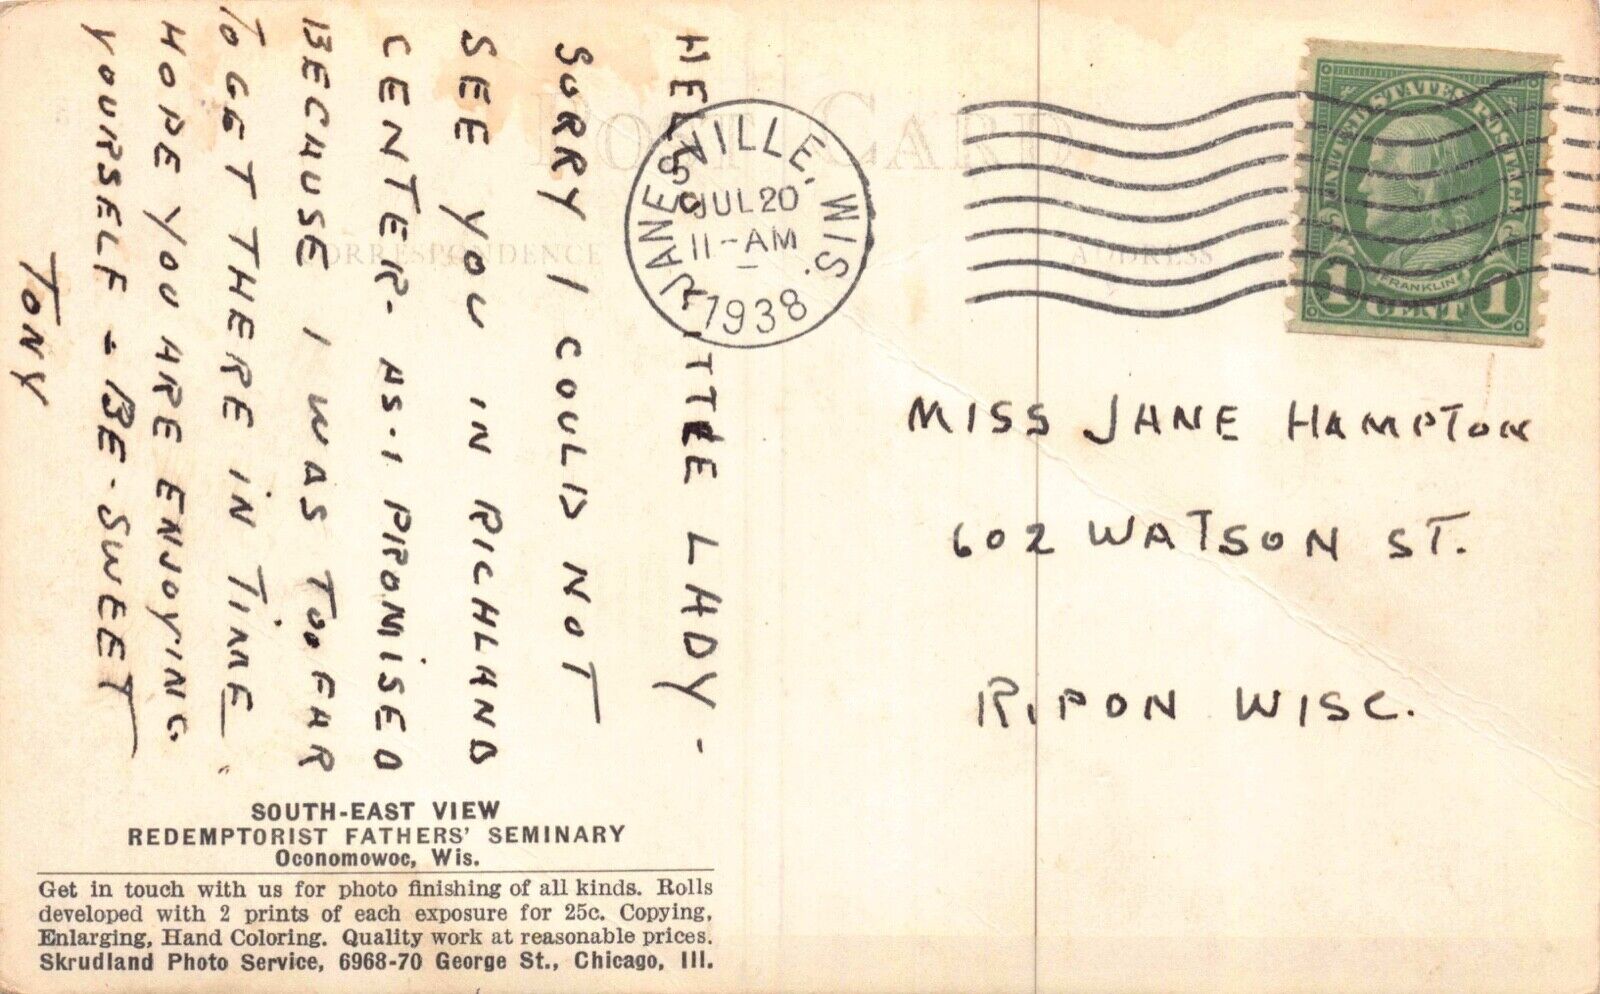 HELLO LITTLE LADY-
SORRY I COULD NOT
SEE YOU IN RICHLAND
CENTER- AS-I PROMISED
BECAUSE I WAS TOO FAR
TO GET THERE IN TIME
HOPE YOU ARE ENJOYING
YOURSELF - BE-SWEET
TONY
POST CARD
CORRESPONDENCE
ADDRESS
JANESVILLE, WIS.
JUL 20
11-AM
1938
UNITED STATES POSTAGE
FRANKLIN
1 CENT 1
MISS JANE HAMPTON
602 WATSON ST.
RIPON WISC.
SOUTH-EAST VIEW
REDEMPTORIST FATHERS' SEMINARY
Oconomowoc, Wis.
Get in touch with us for photo finishing of all kinds. Rolls
developed with 2 prints of each exposure for 25c. Copying,
Enlarging, Hand Coloring. Quality work at reasonable prices.
Skrudland Photo Service, 6968-70 George St., Chicago, Ill.